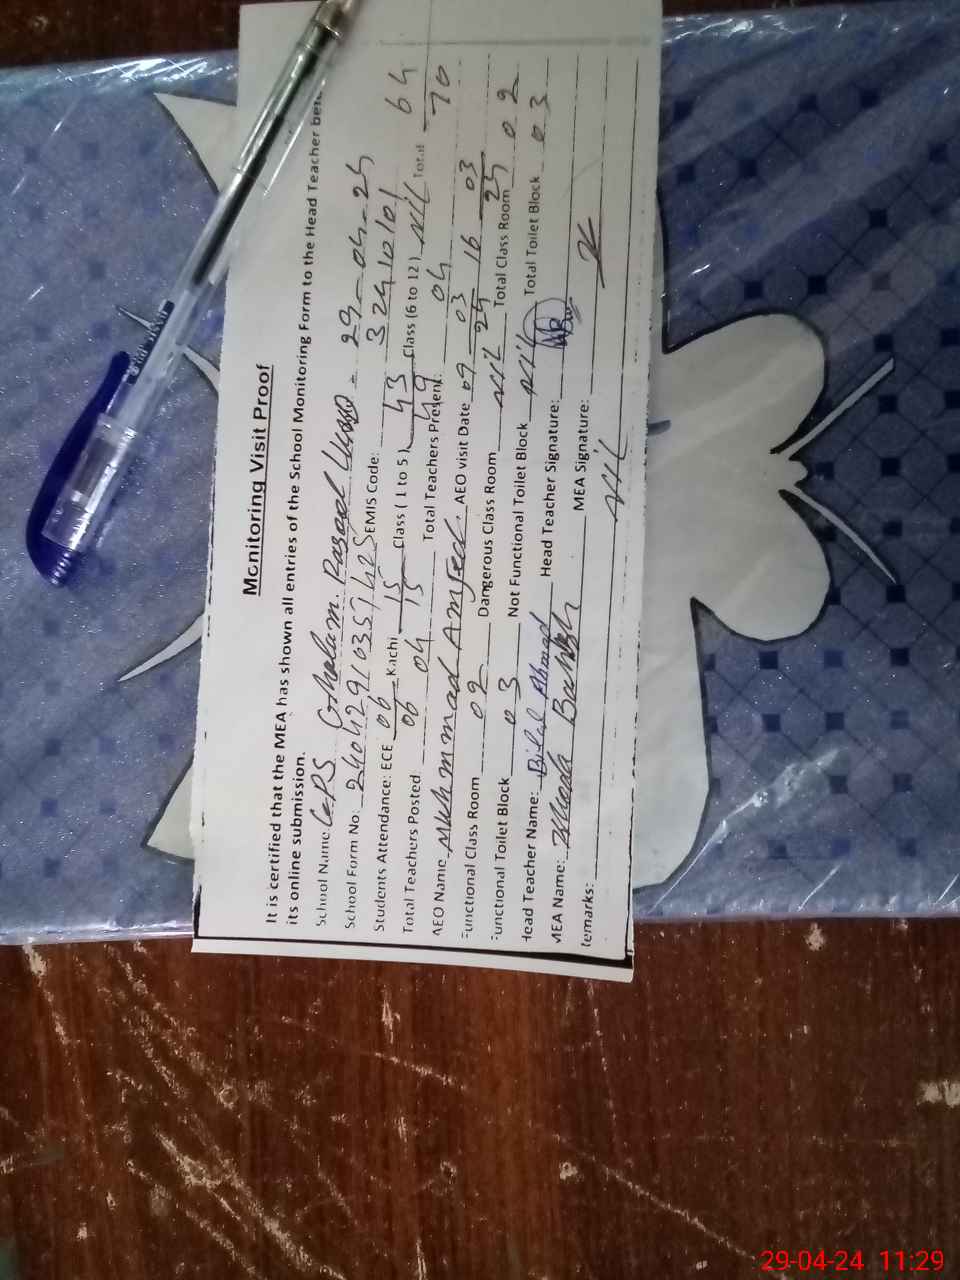 Monitoring Visit Proof
It is certified that the MEA has shown all entries of the School Monitoring Form to the Head Teacher
its online submission.
School Name GPS Gholam Rasool 29-04-24
School Form No: EMIS Code: 32410101
Students Attendance: ECE 06/06 Kachi 15/15 Class (1 to 5) 43/49 Class (6 to 12) Nil Total 64/70
Total Teachers Posted 04 Total Teachers Present: 04
AEO Name Muhmmad Amjed AEO visit Date 09 03/24 16 03/24
Functional Class Room 02 Dangerous Class Room Nil Total Class Room 02
Functional Toilet Block 03 Not Functional Toilet Block Nil Total Toilet Block 03
Head Teacher Name: Bilal Ahmad Head Teacher Signature:
MEA Name: Khuda Bakhsh MEA Signature:
Remarks: Nil
29-04-24 11:29